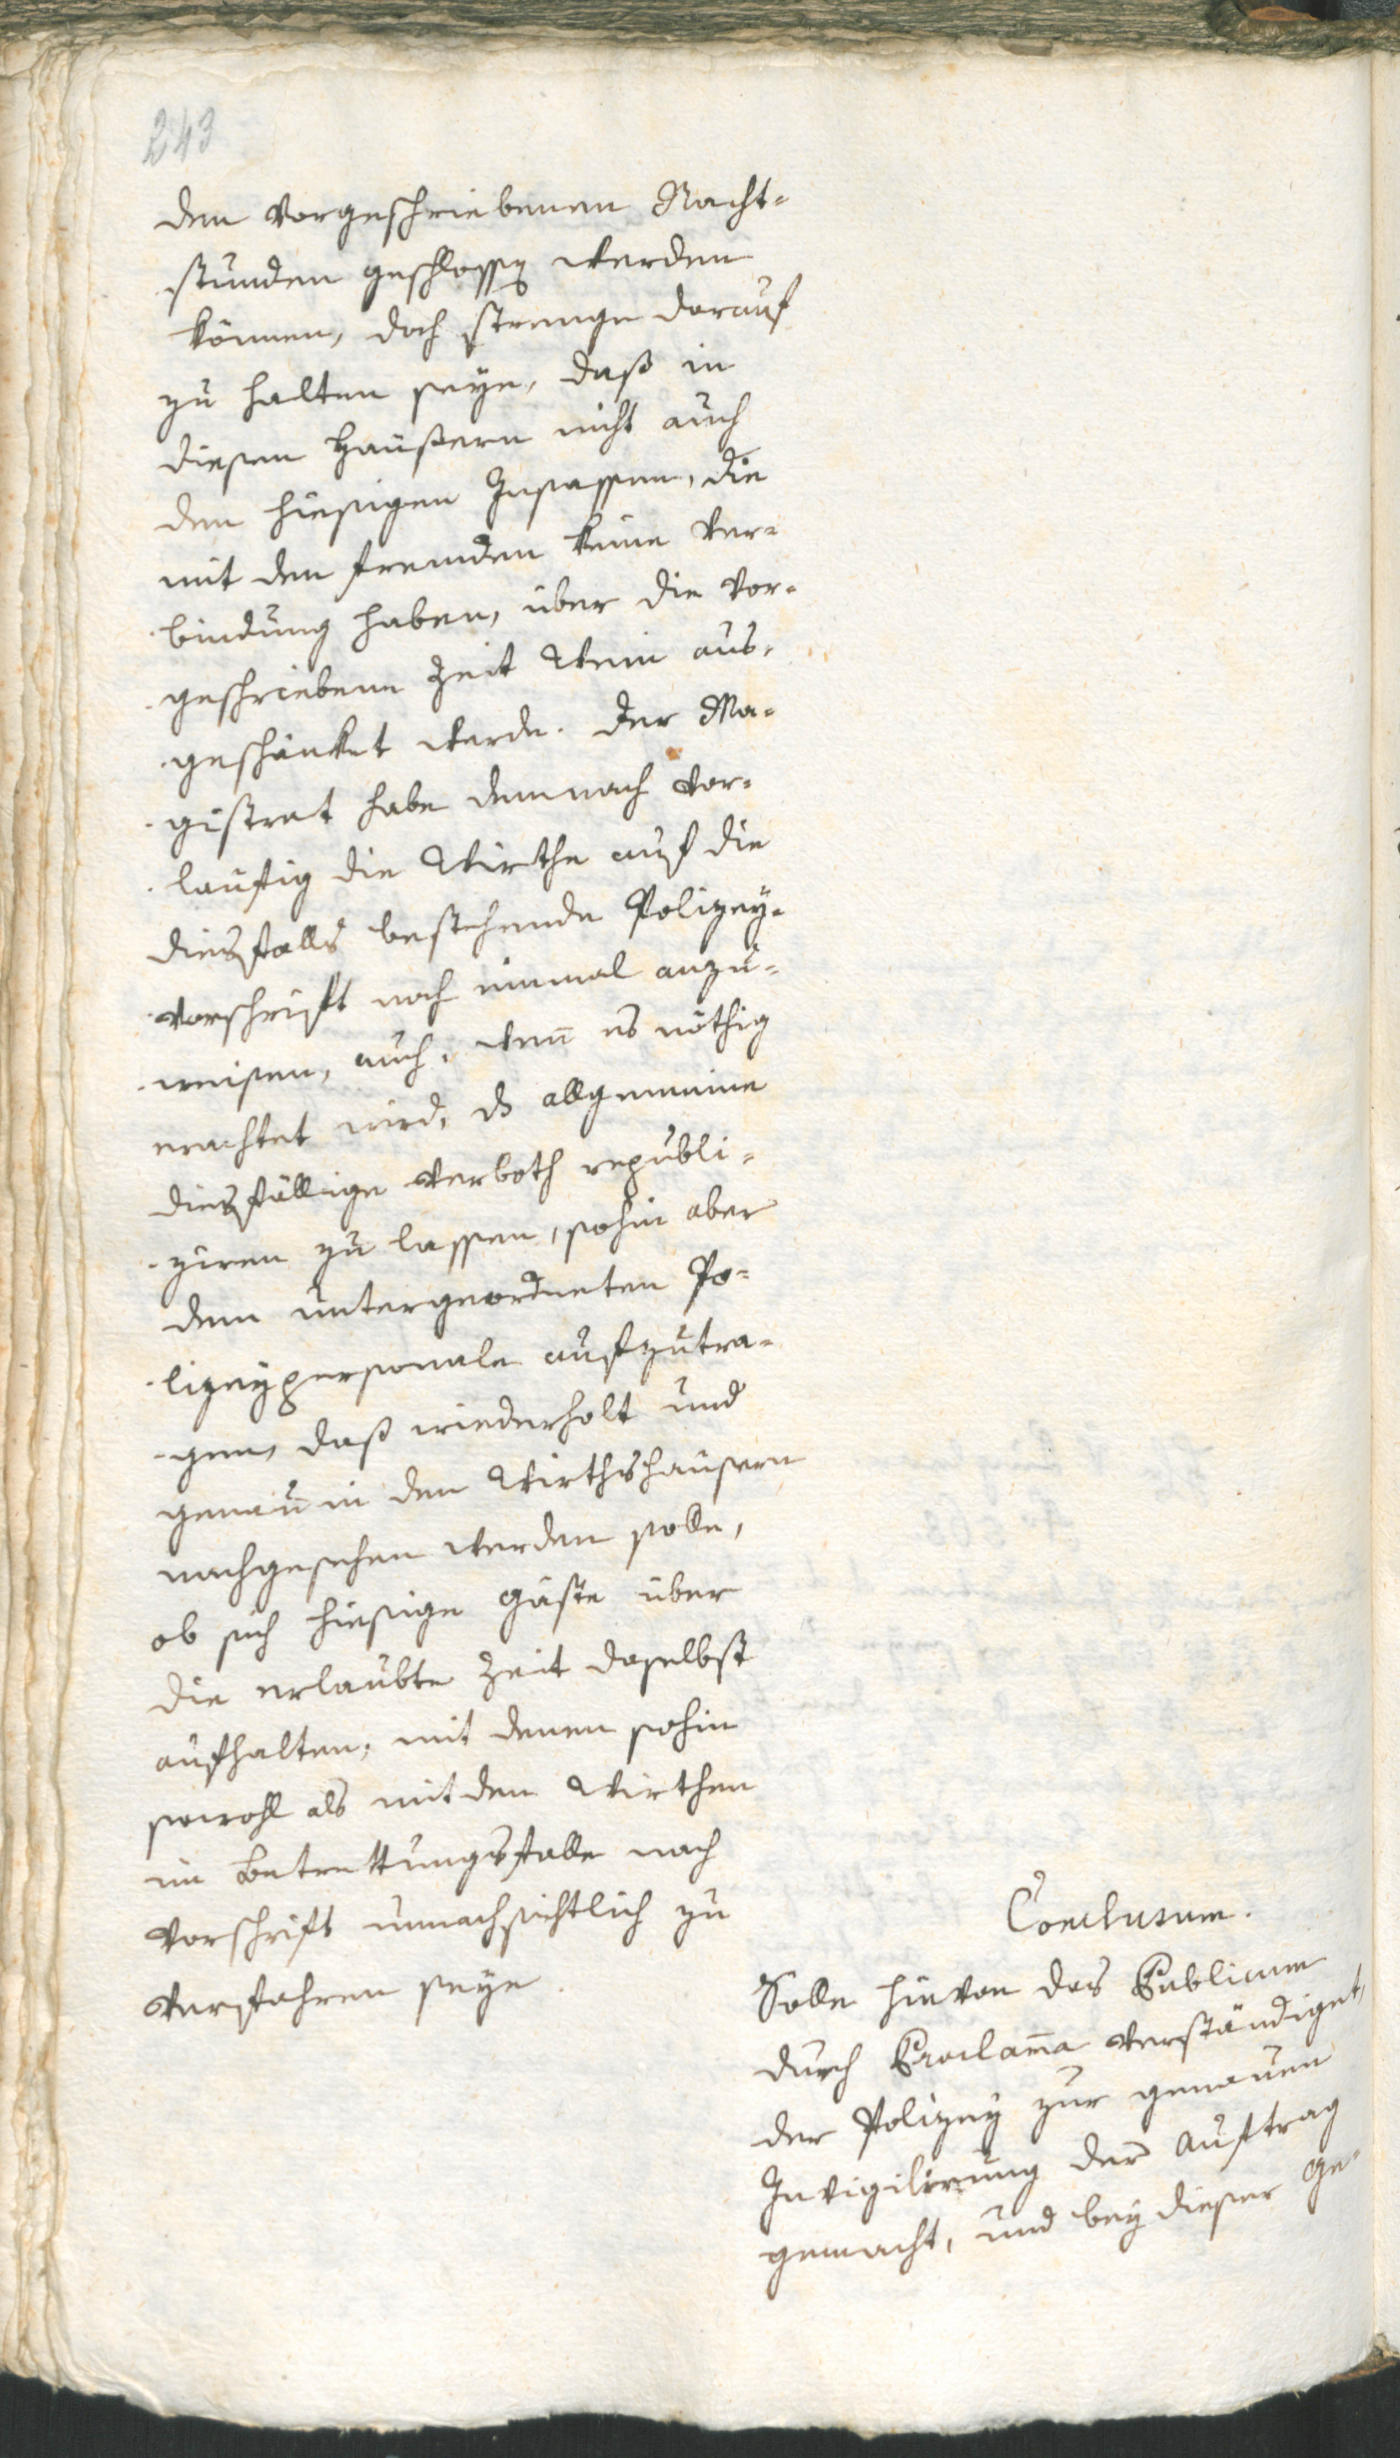 243
den vorgeschriebenen Nacht-
stunden geschlossen werden
können, doch strenge darauf
zu halten seye, daß in
diesen Haüßern nicht auch
den hiesigen Insassen, die
mit den fremden keine Ver-
bindung haben, über die vor-
geschriebene Zeit Wein aus-
geschänket werde. Der Ma-
gistrat habe demnach vor-
laufig die Wirthe auf die
diesfalls bestehende Polizey-
vorschrift noch einmal anzu-
weisen, auch, wenn̅ es nöthig
erachtet wird, das allgemeine
diesfällige Verboth republi-
ziren zu lassen, sohin aber
dem untergeordneten Po-
lizeypersonale aufzutra-
gen, daß wiederholt und
genau in den Wirthshäusern
nachgesehen werden solle,
ob sich hiesige Gäste über
die erlaubte Zeit daselbst
aufhalten, mit denen sohin
sowohl als mit den Wirthen
im Betrettungsfalle nach
Vorschrift unnachsichtlich zu
verfahren seye.
Conclusum.
Solle hievon das Publicum
durch Proclam̅a verständiget,
der Polizey zur genauen
Invigilirung der Auftrag
gemacht, und bey dieser Ge-